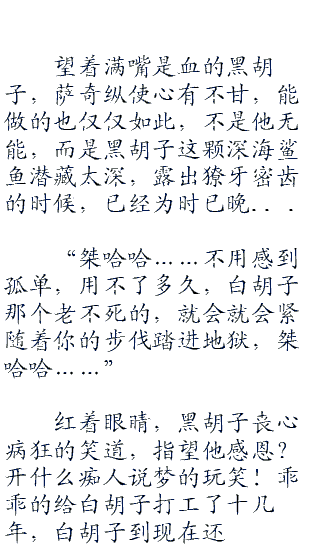 望着满嘴是血的黑胡
子，萨奇纵使心有不甘，能
做的也仅仅如此，不是他无
能，而是黑胡子这颗深海鲨
鱼潜藏太深，露出獠牙密齿
的时候，已经为时已晚...
“桀哈哈……不用感到
孤单，用不了多久，白胡子
那个老不死的，就会就会紧
随着你的步伐踏进地狱，桀
哈哈……”
红着眼睛，黑胡子丧心
病狂的笑道，指望他感恩？
开什么痴人说梦的玩笑！乖
乖的给白胡子打工了十几
年，白胡子到现在还